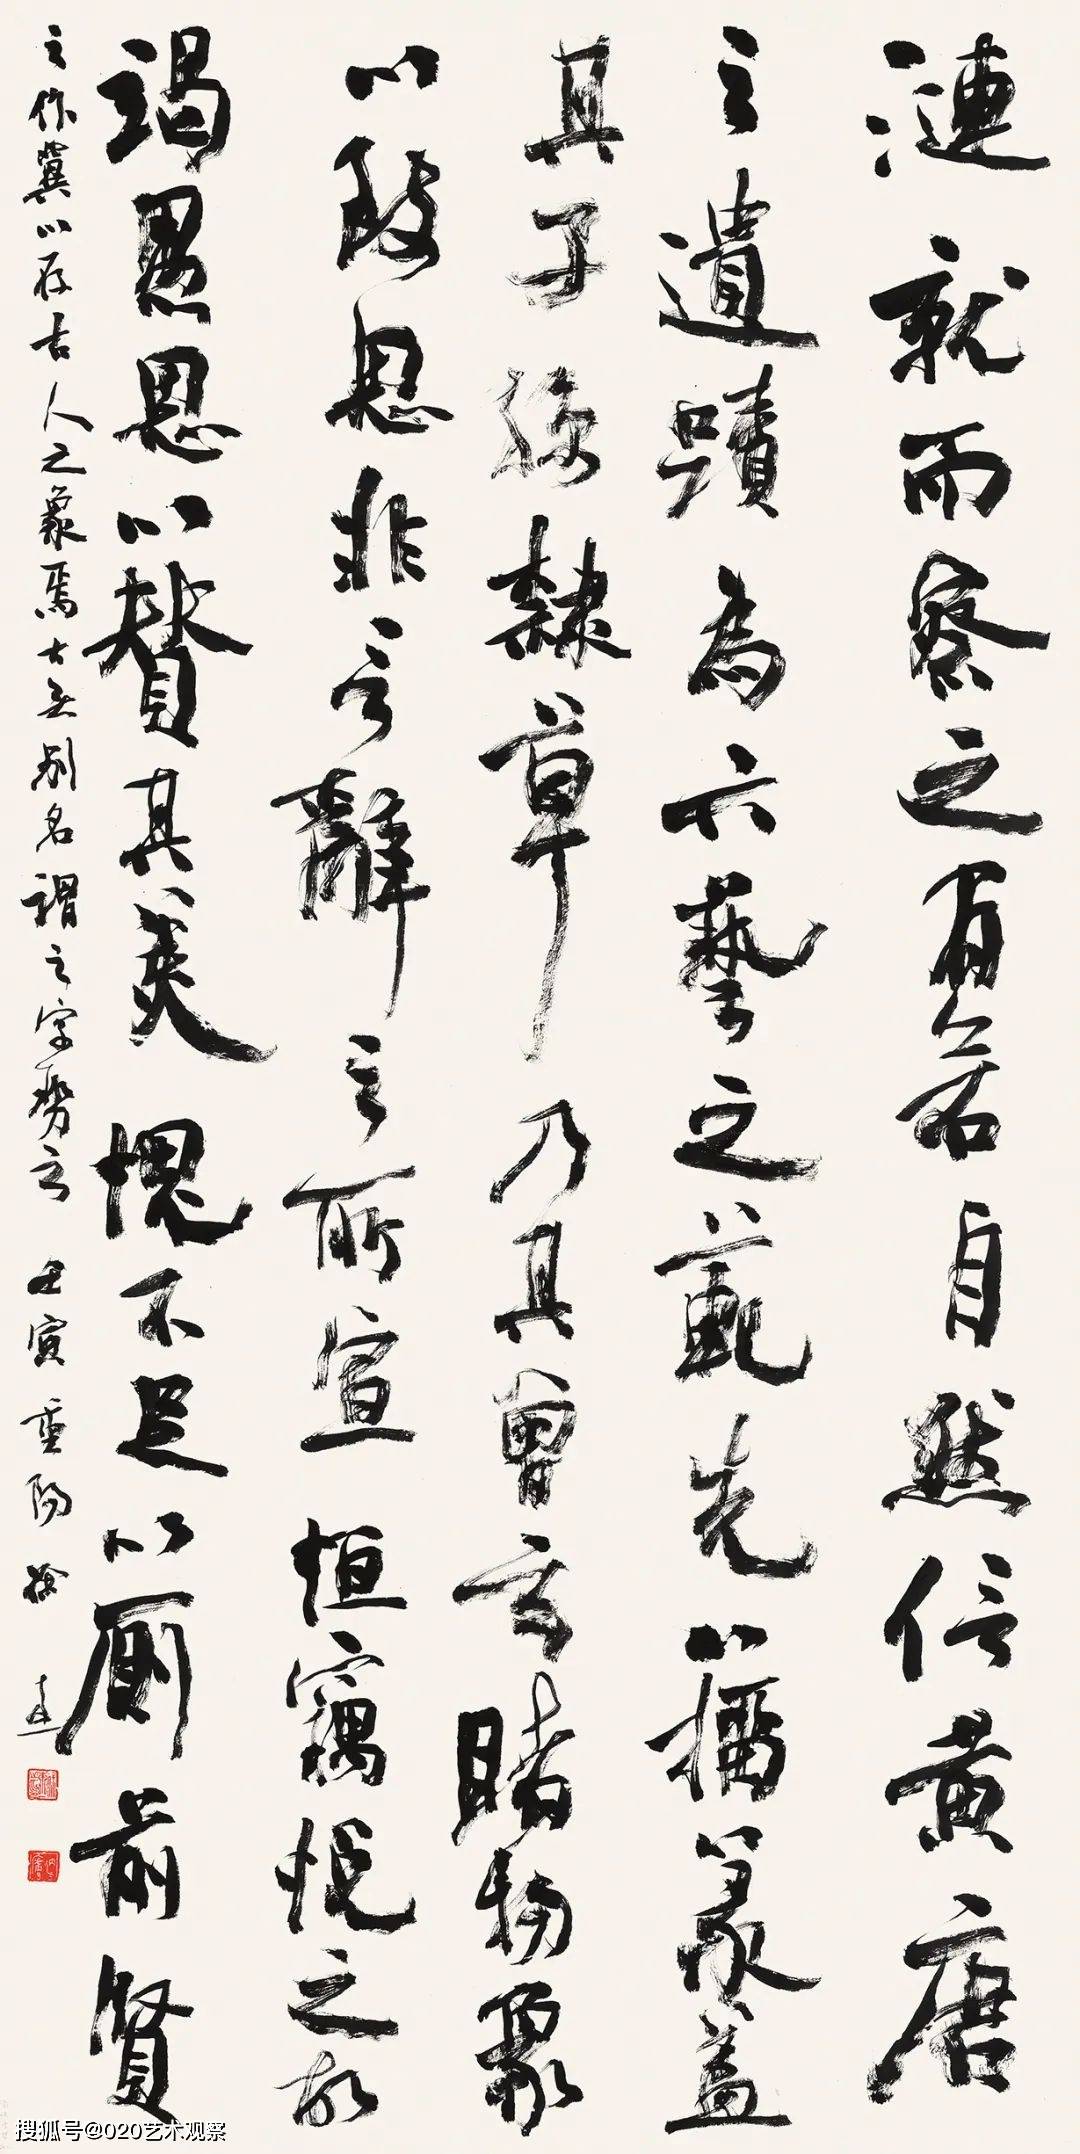 漣就而察之有若自然信黃唐
之遺蹟為六藝之範先籀篆蓋
其子孫隸草乃其曾玄睹物象
以致思非言辭之所宣恒竊悅之故
竭愚思以贊其美愧不足以厠前賢
之作冀以存古人之象焉古無別名謂之字勢云 壬寅重陽 徐
搜狐号@020艺术观察